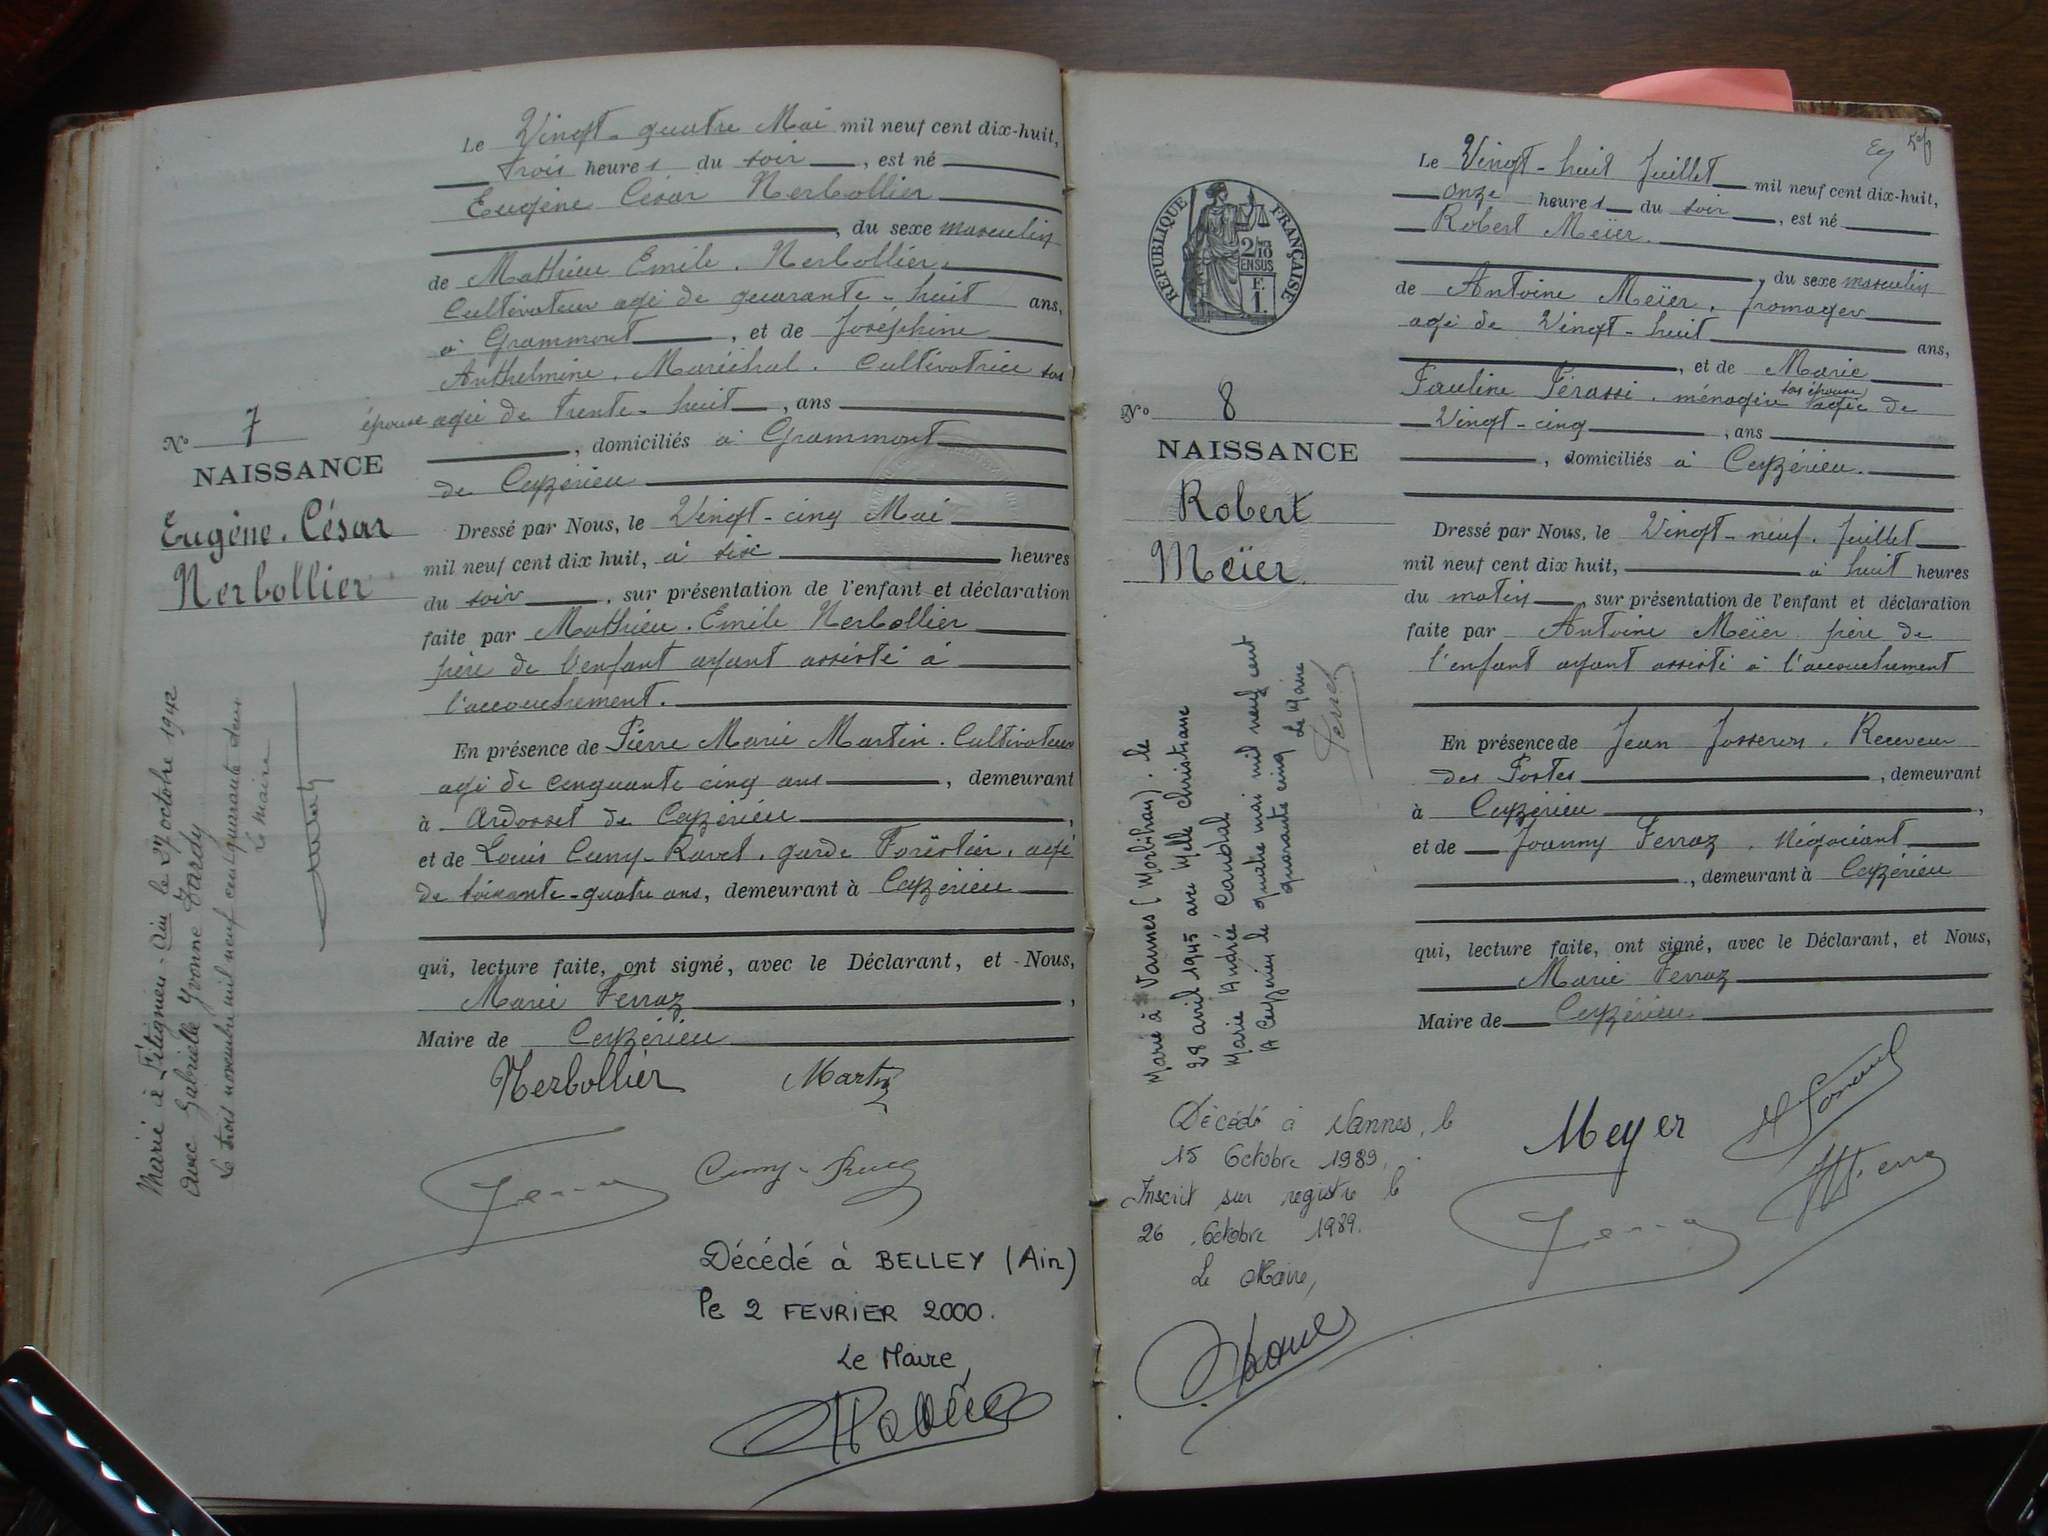 Le Vingt-quatre Mai mil neuf cent dix-huit,
trois heures du soir, est né
Eugène César Nerbollier
, du sexe masculin
de Mathieu Emile. Nerbollier.
Cultivateur agé de quarante-huit ans,
à Grammont, et de Joséphine
Anthelmine. Maréchal. Cultivatrice sas
épouse agée de trente-huit, ans
, domiciliés à Grammont
de Ceyzérieu
Dressé par Nous, le Vingt-cinq Mai
mil neuf cent dix huit, à six heures
du soir, sur présentation de l'enfant et déclaration
faite par Mathieu. Emile Nerbollier
père de l'enfant ayant assisté à
l'accouchement.
En présence de Pierre Marie Martin. Cultivateur
agé de cinquante cinq ans, demeurant
à Ardosset de Ceyzérieu,
et de Louis Cuny-Ravet. garde Forestier. agé
de soixante-quatre ans, demeurant à Ceyzérieu
qui, lecture faite, ont signé, avec le Déclarant, et Nous,
Marie Ferraz,
Maire de Ceyzérieu
Nerbollier Martin
Décédé à BELLEY (Ain)
le 2 FEVRIER 2000.
Le Maire,
No 7
NAISSANCE
Eugène. César
Nerbollier
Marié à Fitignieu - Ain le 27 octobre 1942
avec Gabrielle Yvonne Tardy
Le trois novembre mil neuf cent quarante deux
Le Maire
REPUBLIQUE FRANÇAISE
2/10
EN SUS
F.
1.
No 8
NAISSANCE
Robert
Meïer.
Marié à Vannes (Morbihan). le
28 avril 1945 avec Melle Christiane
Marie Andrée
A Ceyzérieu le quatre mai mil neuf cent
quarante cinq Le Maire
Décédé à Vannes, le
15 Octobre 1989.
Inscrit sur registre le
26 Octobre 1989.
Le Maire,
Le Vingt-huit Juillet mil neuf cent dix-huit,
onze heures du soir, est né
Robert Meïer.
, du sexe masculin
de Antoine Meïer. fromager
agé de Vingt-huit ans,
, et de Marie
Pauline Pérassi. ménagère sas épouse agée de
Vingt-cinq, ans
, domiciliés à Ceyzérieu.
Dressé par Nous, le Vingt-neuf. Juillet
mil neuf cent dix huit, à huit heures
du matin, sur présentation de l'enfant et déclaration
faite par Antoine Meïer père de
l'enfant ayant assisté à l'accouchement
En présence de Jean. Receveur
des Postes, demeurant
à Ceyzérieu,
et de Joanny Ferraz. Négociant
, demeurant à Ceyzérieu
qui, lecture faite, ont signé, avec le Déclarant, et Nous,
Marie Ferraz
Maire de Ceyzérieu
Meyer